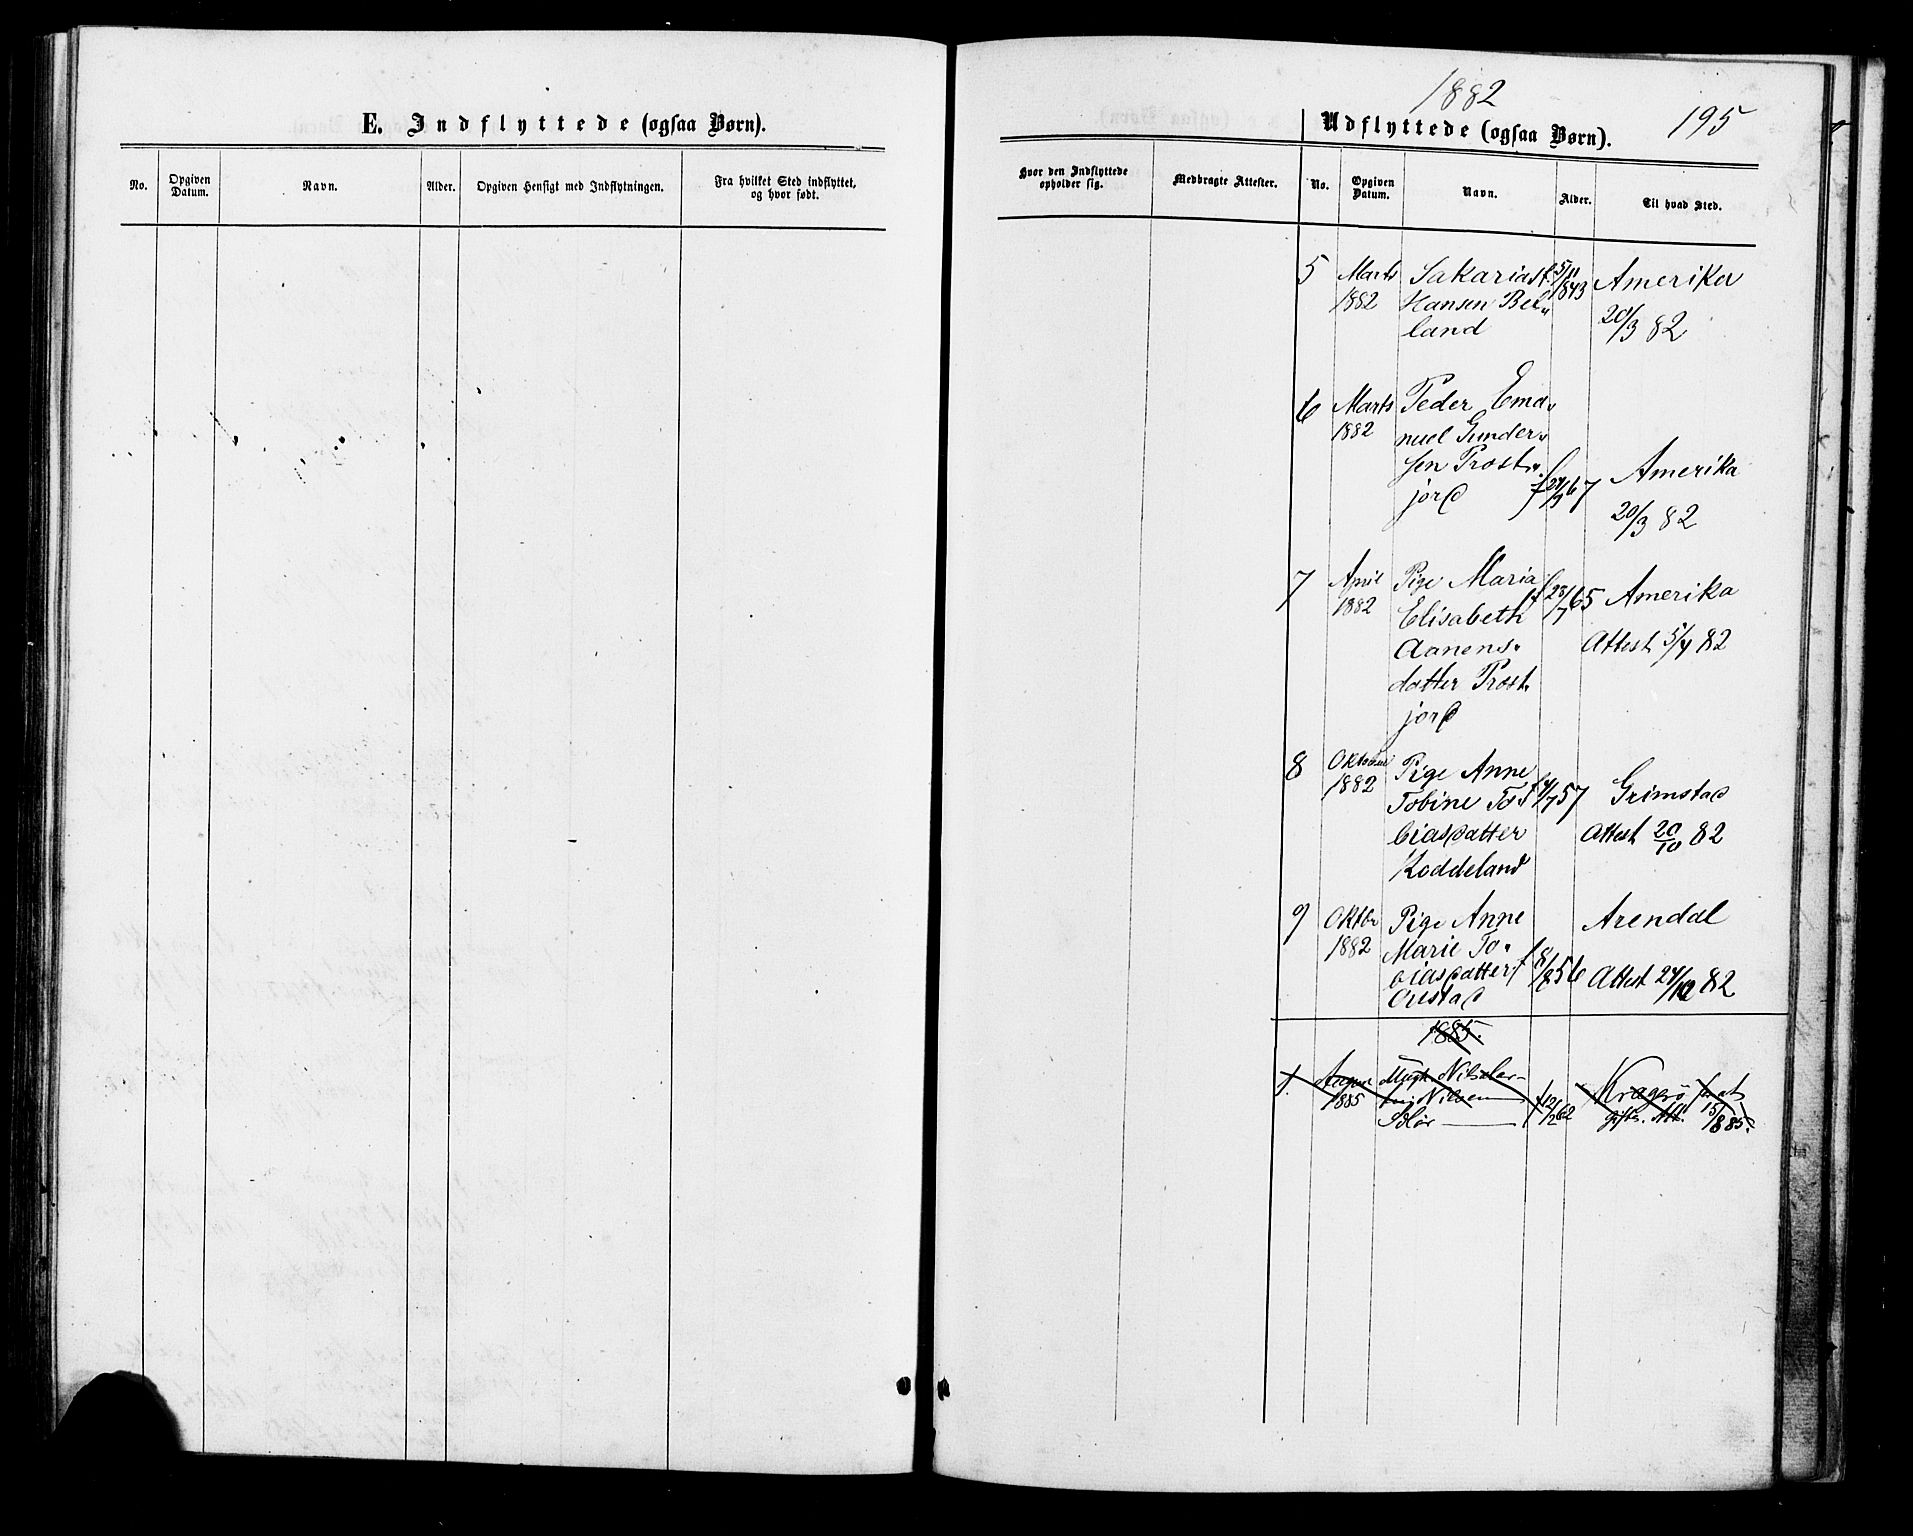 E. Indflyttede (ogsaa Børn).
No.
Opgiven
Datum.
Navn.
Alder.
Opgiven Hensigt med Indflytningen.
Fra hvilket Sted indflyttet,
og hvor født.
1882
195
Udflyttede (ogsaa Børn).
Hvor den Indflyttede
opholder sig.
Medbragte Attester.
No.
Opgiven
Datum.
Navn.
Alder.
Til hvad Sted.
5 Marts Sakarias f. 5/11 Amerika
1882 Hansen Bel„ 1843
land 20/3 82
6 Marts Peder Ema„
1882 nuel Gunder„
sen Prost„ Amerika
jord f 24/9 67
20/3 82
7 April Pige Maria f 28/7 65 Amerika
1882 Elisabeth
Aanens„ Attest 5/4 82
datter Prost„
jord
8 Oktober Pige Anne
1882 Tobine To f 4/7 57 Grimstad
biasdatter Attest 20/10 82
Koddeland
9 Oktbr Pige Anne Arendal
1882 Marie To„
biasdatter f 8/8 56 Attest 24/10 82
1885.
1. August
1885 Nilsen f 12/2 62 Kragerø for at
giftes. Att. 15/8 85.